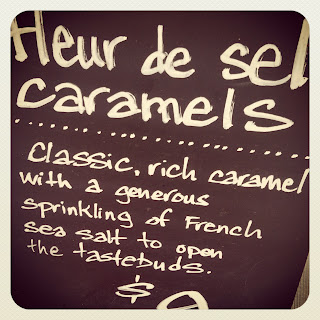 Fleur de sel
caramels
Classic, rich caramel
with a generous
sprinkling of French
sea salt to open
the tastebuds.
$